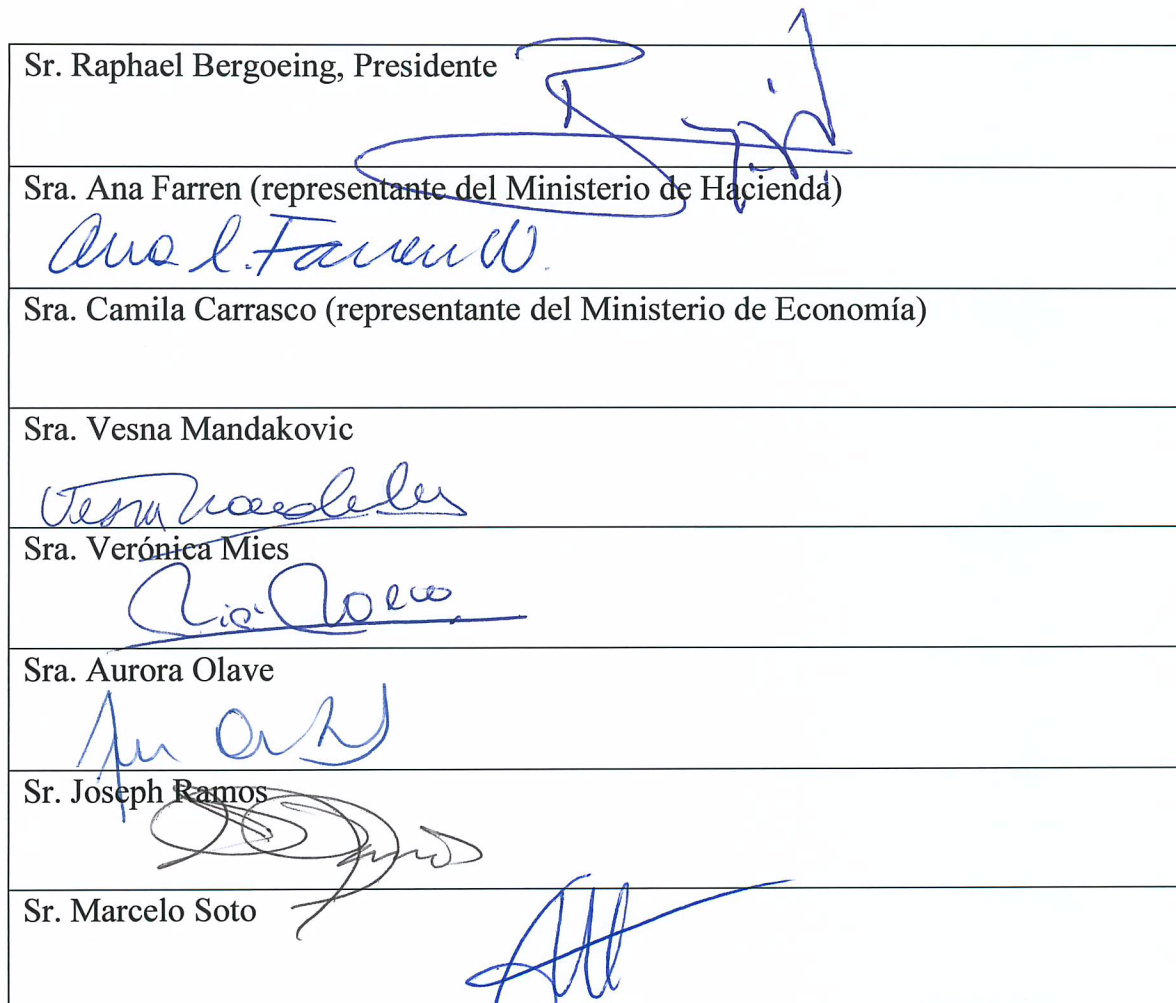 Sr. Raphael Bergoeing, Presidente
Sra. Ana Farren (representante del Ministerio de Hacienda)
Ana l. Farren W.
Sra. Camila Carrasco (representante del Ministerio de Economía)
Sra. Vesna Mandakovic
Vesna
Sra. Verónica Mies
Sra. Aurora Olave
Sr. Joseph Ramos
Sr. Marcelo Soto